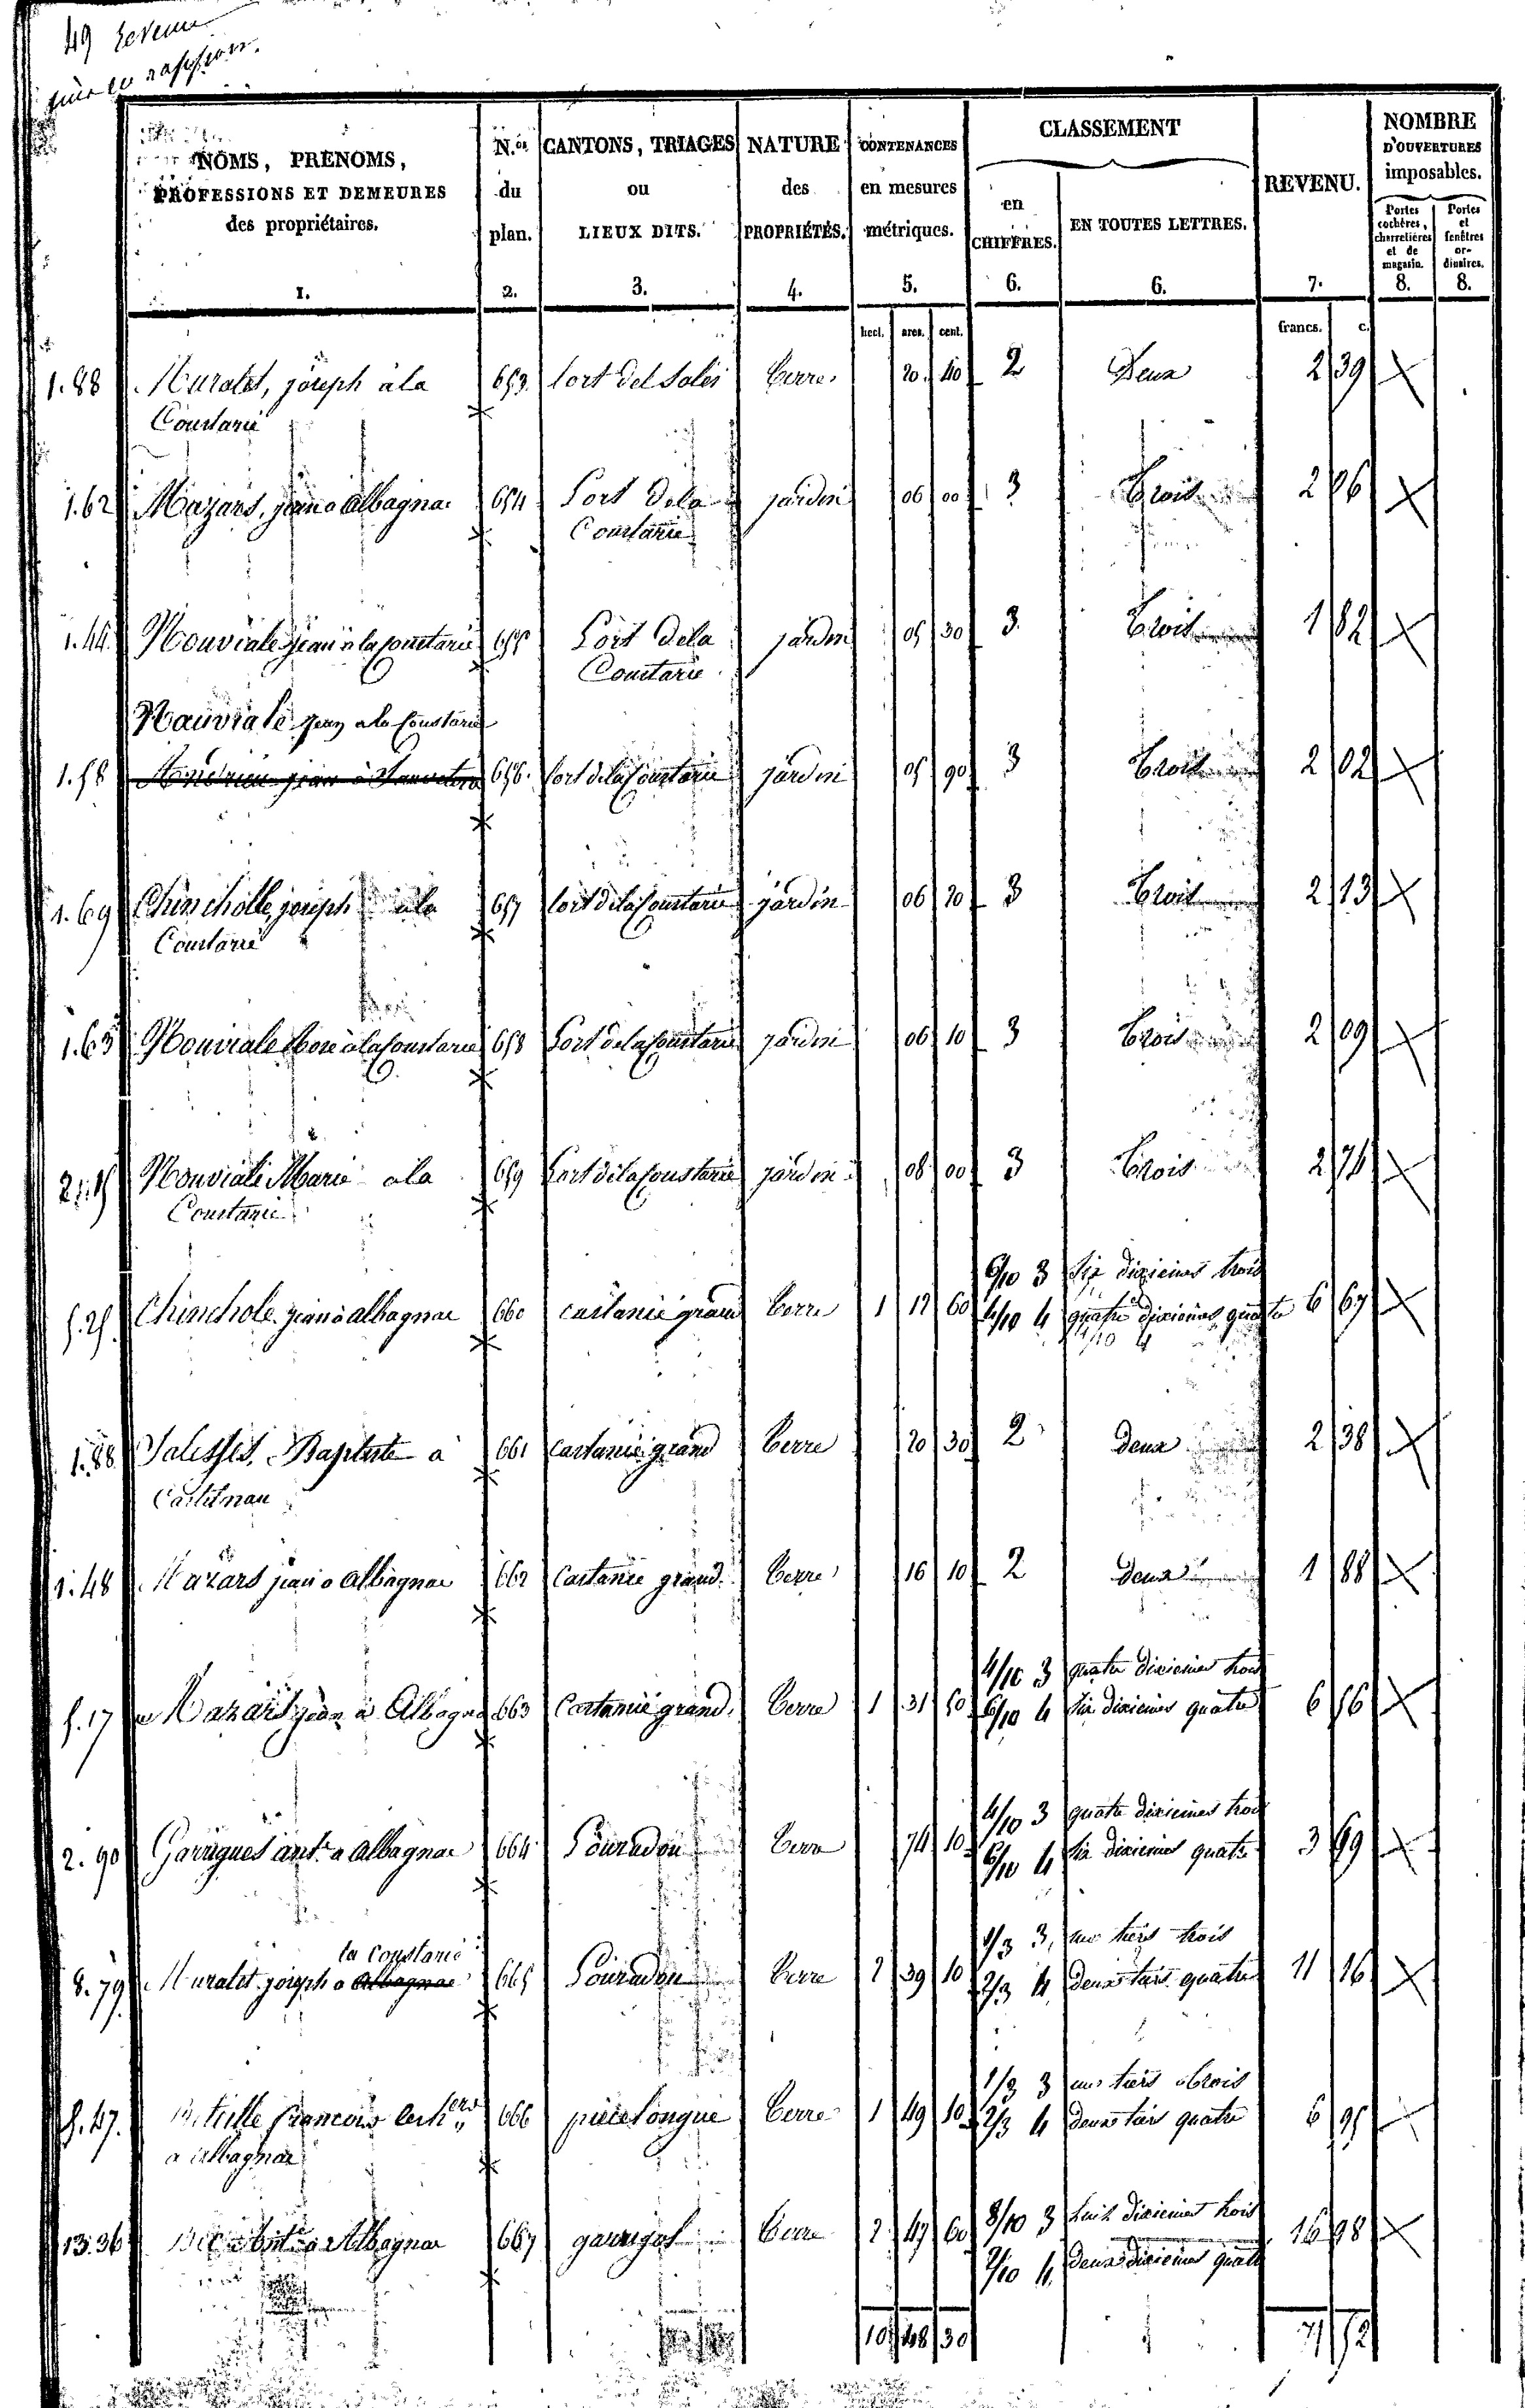 49
NOMS, PRÉNOMS, PROFESSIONS ET DEMEURES des propriétaires. 1.
N.os du plan. 2.
CANTONS, TRIAGES ou LIEUX DITS. 3.
NATURE des PROPRIÉTÉS. 4.
CONTENANCES en mesures métriques. 5.
CLASSEMENT
en CHIFFRES. 6.
EN TOUTES LETTRES. 6.
REVENU. 7.
NOMBRE D'OUVERTURES imposables.
Portes cochères, charretières et de magasin. 8.
Portes et fenêtres ordinaires. 8.
hect. ares. cent. francs. c.
1.88 Muratet, joseph à la 653 Terre 20 40 2 Deux 2 39
Coustarié
1.62 Mazars, jean a Albagnac 654 Sort de la jardin 06 00 3 Trois 2 06
Coustarié
1.44 Nouviale jean à la Coustarié 655 Sort de la jardin 05 30 3 Trois 1 82
Coustarié
Nauviale jean a la Coustarié
1.58 656 Sort de la Coustarié jardin 05 90 3 Trois 2 02
1.69 Chincholle, joseph à la 657 Sort de la Coustarié jardin 06 20 3 Trois 2 13
Coustarié
1.65 Nouviale Rose à la Coustarié 658 Sort de la Coustarié jardin 06 10 3 Trois 2 09
Nouviale Marie à la 659 Sort de la Coustarié jardin 08 00 3 Trois 2 74
Coustarié
6/10 3 Six dixiemes trois
5.25 Chinchole jean à albagnac 660 castanié grand Terre 1 12 60 4/10 4 quatre dixiemes quatre 6 67
4/10 4
1.88 Salesses, Baptiste à 661 castanié grand Terre 20 30 2 deux 2 38
Castelnau
1.48 Mazars jean a albagnac 662 Castanié grand Terre 16 10 2 deux 1 88
4/10 3 quatre dixiemes trois
5.17 Mazars jean à Albagnac 663 Castanié grand Terre 1 31 50 6/10 4 Six dixiemes quatre 6 56
4/10 3 quatre dixiemes trois
2.90 Garrigues ant.e a albagnac 664 Terre 74 10 6/10 4 Six dixiemes quatre 3 69
la Coustarié 1/3 3 un tiers trois
8.79 Muratet joseph a Albagnac 665 Terre 2 39 10 2/3 4 deux tiers quatre 11 16
1/3 3 un tiers Trois
5.47 francois 666 pièce longue Terre 1 49 10 2/3 4 deux tiers quatre 6 95
a albagnac
8/10 3 huit dixiemes trois
13.36 Albagnac 667 garrigot Terre 2 47 60 2/10 4 deux dixiemes quatre 16 98
10 48 30 71 52